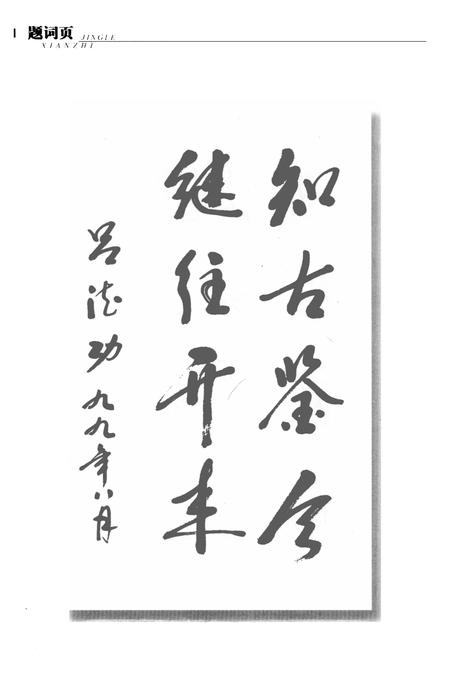 题词页
JINGLE
XIANZHI
知古鉴今
继往开来
吕德功
九九年八月